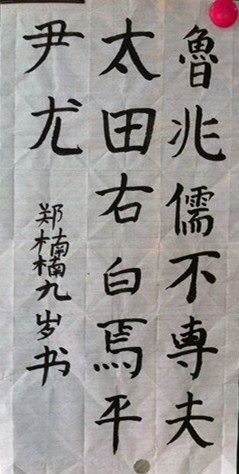 魯兆儒不専夫
太田右白焉平
尹尤
郑楠楠九岁书